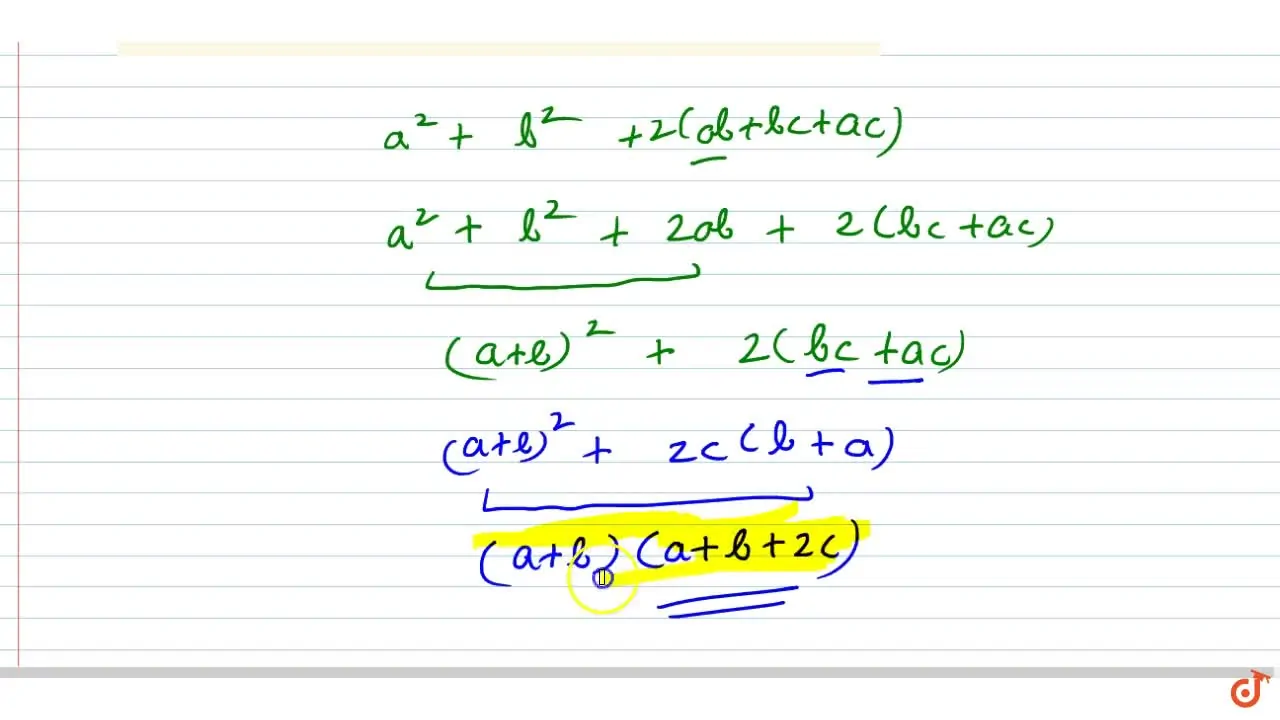 a² + b² +2(ab+bc+ac)
a² + b² + 2ab + 2(bc+ac)
(a+b)² + 2(bc+ac)
(a+b)² + 2c(b+a)
(a+b)(a+b+2c)